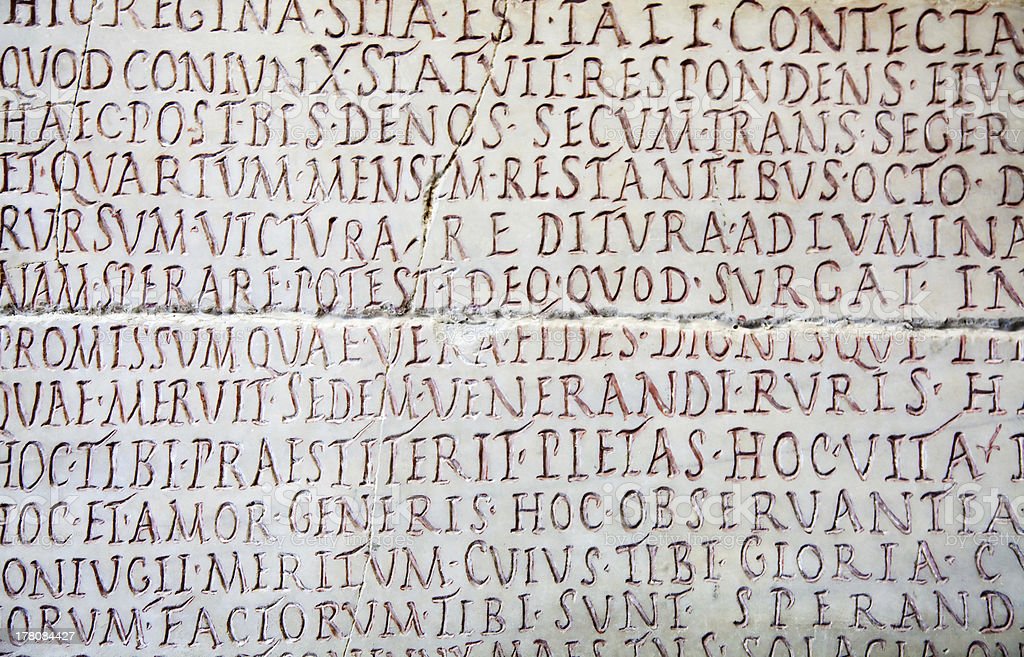 HIC REGINA·SITA EST·TALI·CONTECTA
QUOD CONIUNX·STATUIT·RESPONDENS·EIUS
HAEC·POST·BIS·DENOS SECUM TRANS·SEGER
ET·QUARTUM·MENSEM·RESTANTIBUS·OCTO·D
RURSUM·VICTURA·REDITURA·AD LUMINA
NAM·SPERARE·POTEST·IDEO·QUOD·SURGAT·IN
PROMISSUM QUAE VERA FIDES·DIGNISQUE
QUAE·MERUIT·SEDEM·VENERANDI·RURIS·H
HOC·TIBI·PRAESTITERIT·PIETAS·HOC VITA
HOC·ET·AMOR GENERIS HOC OBSERVANTIA
ONIUGII·MERITUM·CUIUS·TIBI GLORIA·CU
ORUM·FACTORUM TIBI·SUNT SPERAND
SOLACIA
iStock
by Getty Images
178084427